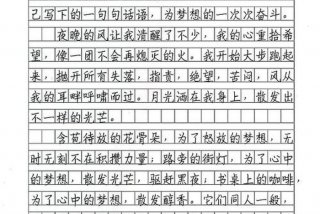 己写下的一句句话语，为梦想的一次次奋斗。
夜晚的风让我清醒了不少，我的心重拾希
望，像一团不会再熄灭的火。我开始大步跑起
来，抛开所有失落，指责，绝望，苦闷，风从
我的耳畔呼啸而过。月光洒在我身上，散发出
不一样的光芒。
含苞待放的花骨朵，为了怒放的梦想，无
时无刻不在积攒力量；路旁的街灯，为了心中
的梦想，散发光芒，驱赶黑夜；书桌上的咖啡，
为了心中的梦想，散发醇香。它们同人一般，